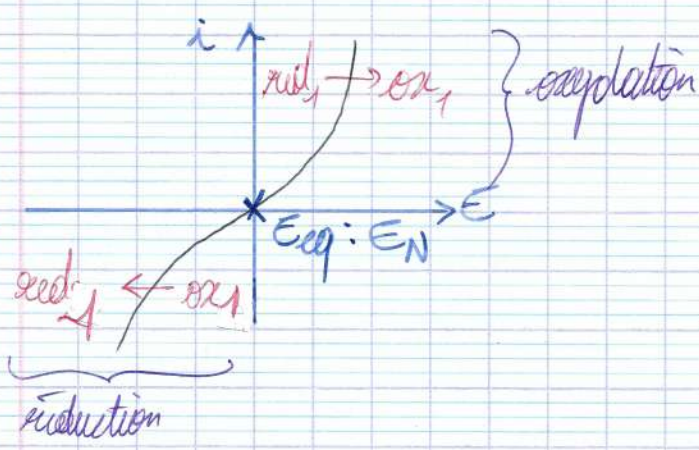 i
red₁ → ox₁
oxydation
E
Eeq : EN
red₁ ← ox1
réduction